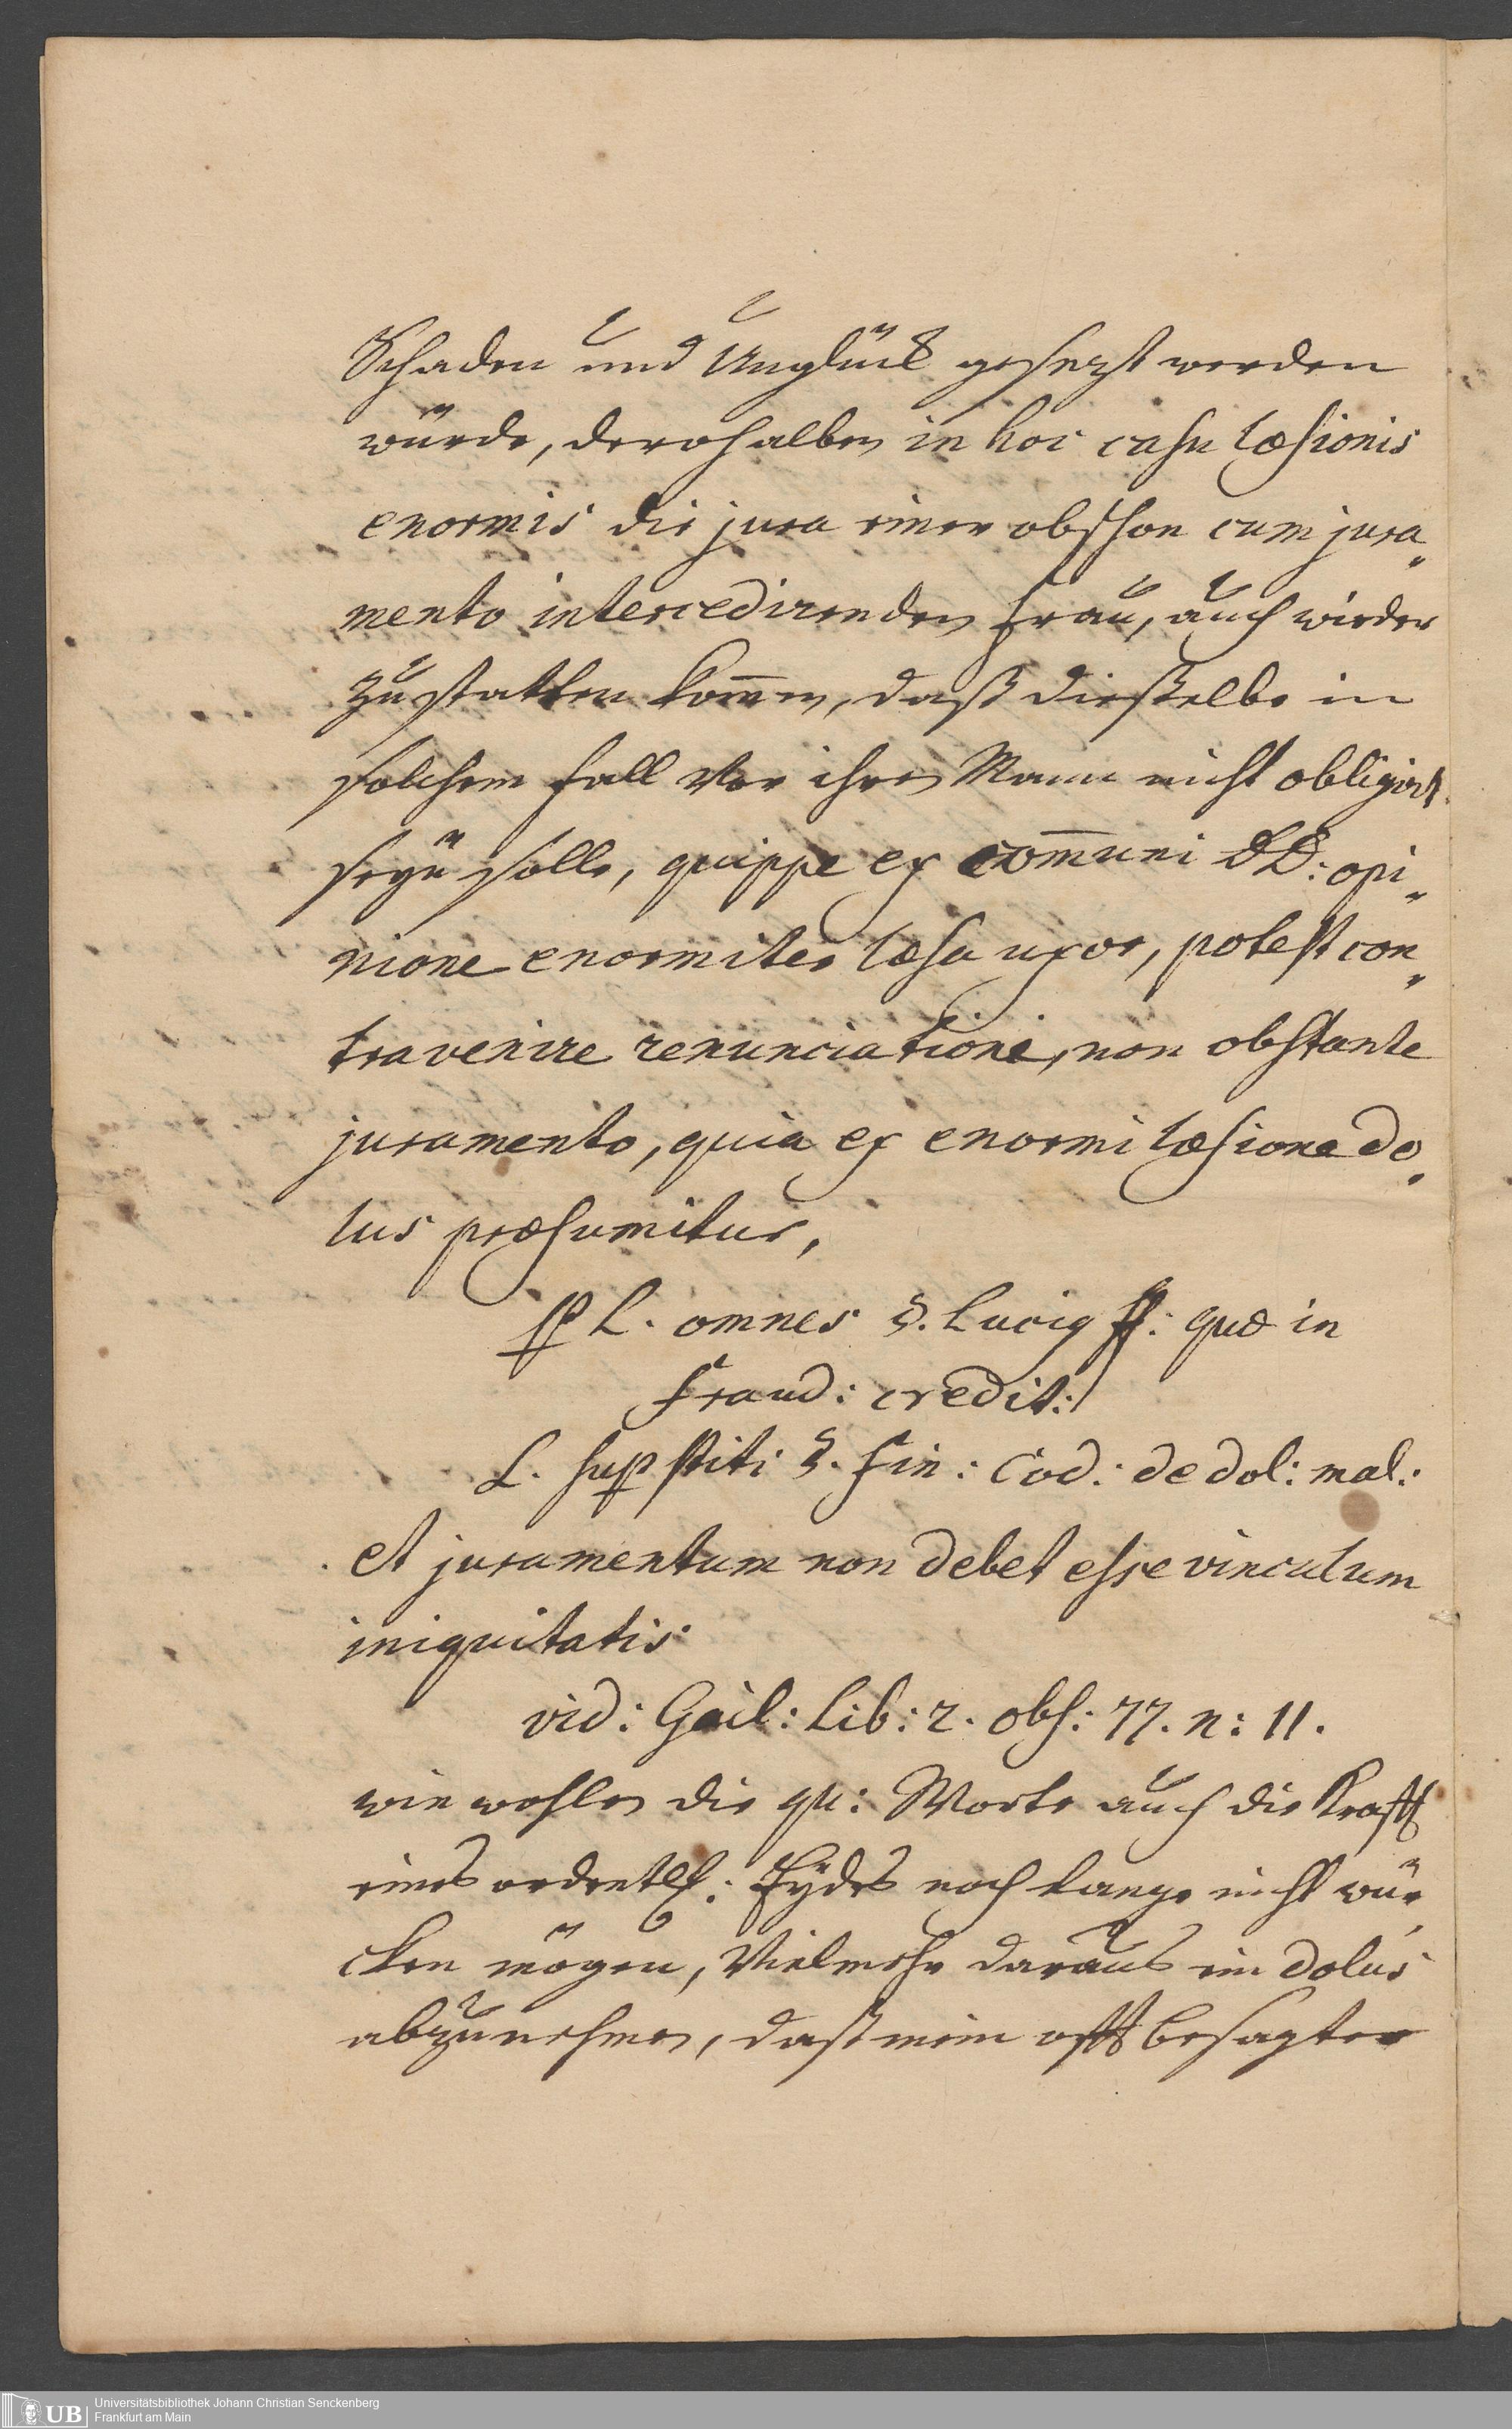 Schaden und Unglück gesezt werden
würde, derohalben in hoc casu læsionis
enormis die jura einer obschon cum jura„
mento intercedirenden Frau, auch wieder
zu statten kom̄en, daß dieselbe in
solchem Fall vor ihren Mann nicht obligirt
seyn solle, quippe ex com̄uni DD: opi„
nione enormiter læsa uxor, potest con„
travenire renunciationi, non obstante
juramento, quia ex enormi læsione do„
lus præsumitur,
p L. omnes §. Lucig ff: quæ in
fraud: credit:
L. supstiti §. fin: Cod: de dol: mal:
et juramentum non debet esse vinculum
iniquitatis
vid: Gail: Lib: 2. obs: 77. n: 11.
wie wohlen die qu: Worte auch die Krafft
eines ordentl: Eydes noch lange nicht wür„
cken mögen, vielmehr daraus ein dolus
abzunehmen, daß mein offt besagter
Universitätsbibliothek Johann Christian Senckenberg
Frankfurt am Main
UB